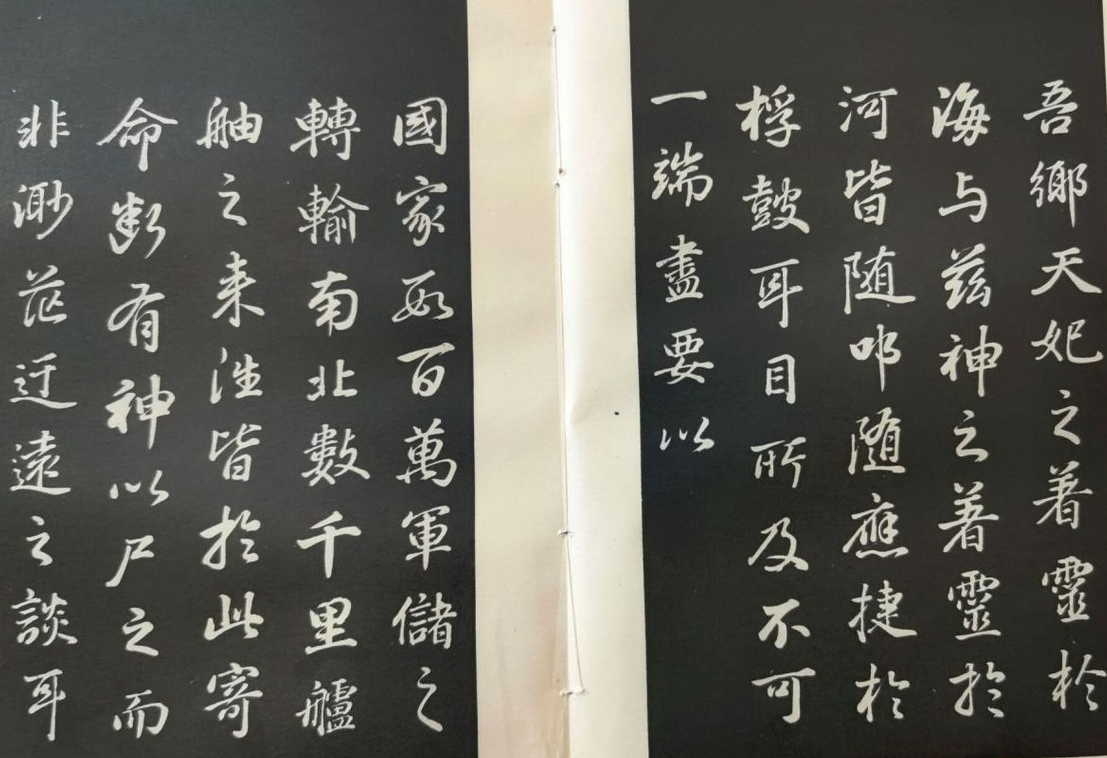 吾鄉天妃之著靈於
海与茲神之著靈於
河皆随叩随應捷於
桴鼓耳目所及不可
一端盡要以
國家歲百萬軍儲之
轉輸南北數千里艫
舳之来往皆於此寄
命斷有神以尸之而
非渺茫迂遠之談耳